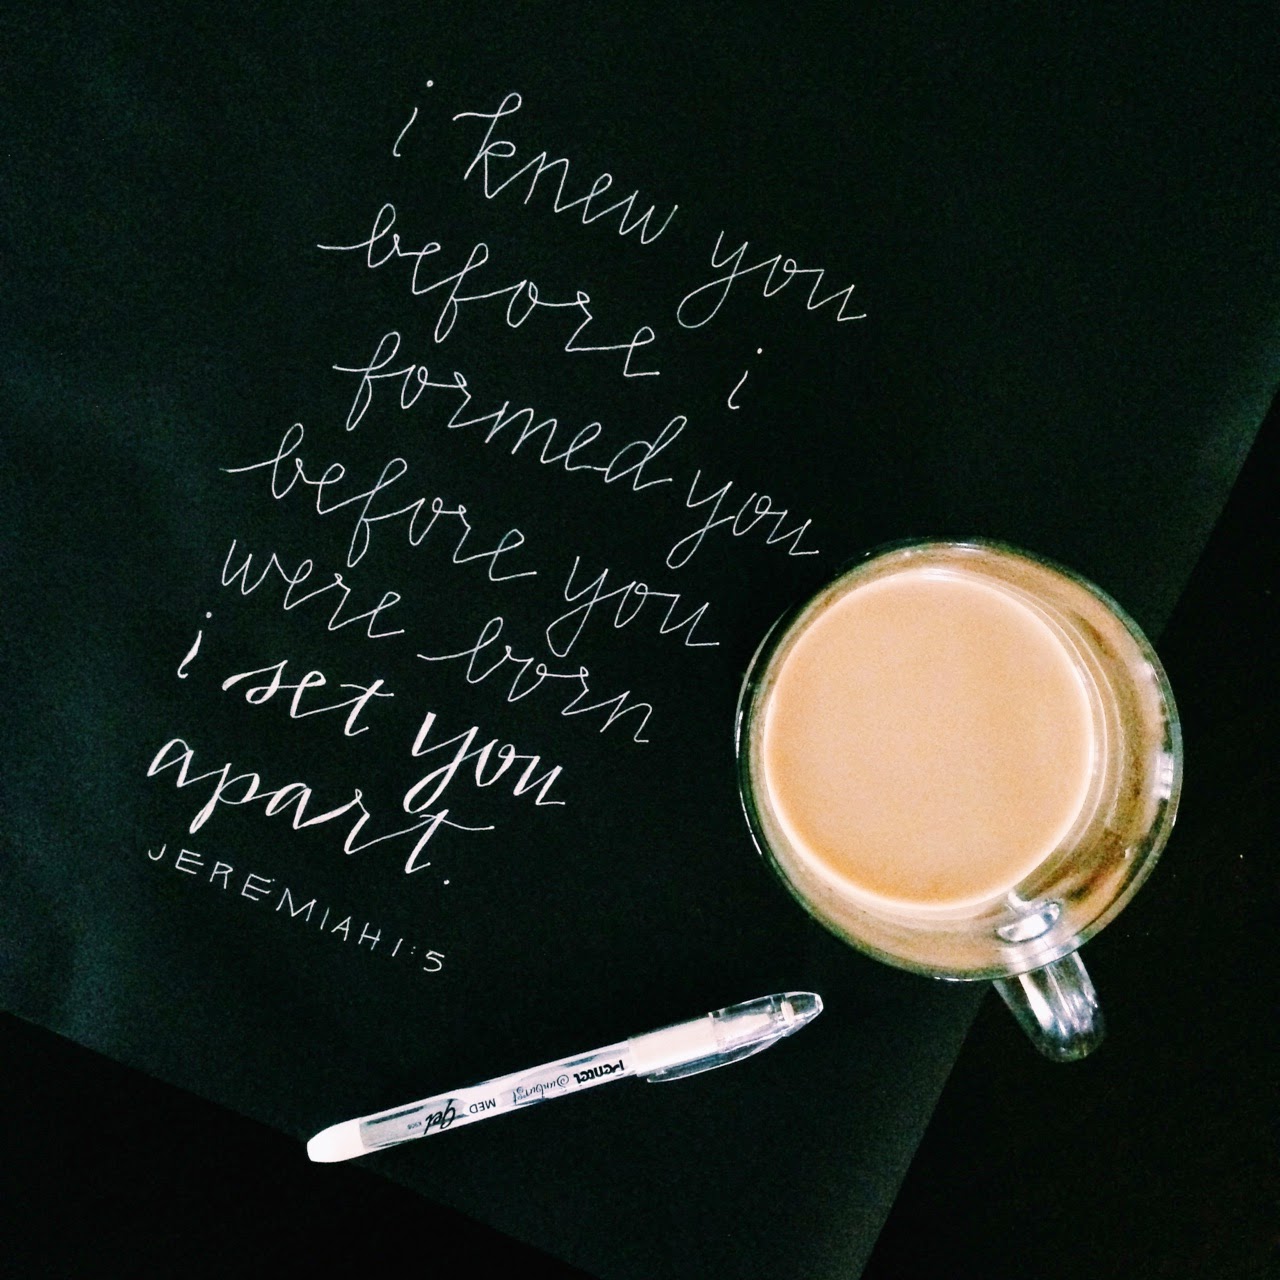 i knew you
before i
formed you
before you
were born
i set you
apart.
JEREMIAH 1:5
Pentel Sunburst MED gel K908